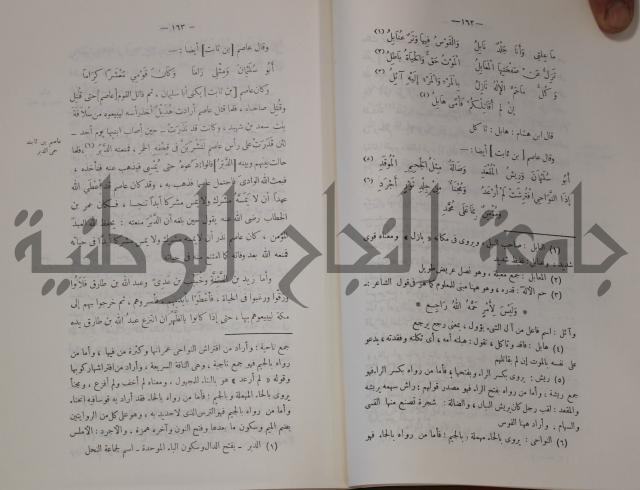 — ١٦٢ —
ما علتي وأنا جلد نابل والقوس فيها وتر عنابل (١)
تزل عن صفحتها المعابل الموت حق والحياة باطل (٢)
وكل ما حم الإله نازل بالمرء والمرء إليه آئل (٣)
إن لم أقاتلكم فأمي هابل (٤)
قال ابن هشام : هابل : ثاكل
وقال عاصم [ بن ثابت ] أيضا : —
أبو سليمان وريش المقعد وضالة مثل الجحيم الموقد (٥)
إذا النواحي افترشت لم أرعد ومجنأ من جلد ثور أجرد (٦)
ومؤمن بما على محمد
(١) النابل : صاحب النبل ، ويروى في مكانه « بازل » ومعناه قوى
شديد ، وعنابل : غليظ شديد
(٢) المعابل : جمع معبلة ، وهو نصل عريض طويل
(٣) حم الإله : قدره ، وهو ههنا مبنى للمعلوم كما هو في قول الشاعر : —
* وليس لأمر حمه الله راجع *
وآئل : اسم فاعل من آل الشيء يؤول ، بمعنى رجع يرجع
(٤) هابل : فاقد وثاكل ، تقول : هبلته أمه ، أي ثكلته وفقدته ، يدعو
على نفسه بالموت إن لم يقاتلهم
(٥) ريش : يروى بكسر الراء وبفتحها ، فأما من رواه بكسر الراء فهو
جمع ريشة ، وأما من رواه بفتح الراء فهو مصدر قولهم : راش سهمه يريشه
والمقعد : لقب رجل كان يريش النبال ، والضالة : شجرة تصنع منها القسى
والسهام . وأراد هنا القوس
(٦) النواحي : يروى بالحاء مهملة وبالجيم ؛ فأما من رواه بالحاء فهو
— ١٦٣ —
وقال عاصم [ بن ثابت ] أيضا : —
أبو سليمان ومثلي راما وكان قومي معشرا كراما
وكان عاصم [ بن ثابت ] يكنى أبا سليمان ، ثم قاتل القوم [ عاصم ] حتى قتل
وقتل صاحباه ، فلما قتل عاصم أرادت هذيل أخذ رأسه ليبيعوه من سلافة
بنت سعد بن شهيد ، وكانت قد نذرت — حين أصاب ابنيها يوم أحد —
لئن قدرت على رأس عاصم لتشربن في قحفه الخمر ، فمنعته الدبر (١) فلما
عاصم بن ثابت
حمى الدبر
حالت بينهم وبينه [ الدبر ] قالوا : دعوه حتى يمسي فيذهب عنه فنأخذه ،
فبعث الله الوادي فاحتمل عاصما فذهب به ، وقد كان عاصم قد أعطى الله
عهدا أن لا يمسه مشرك ولا يمس مشركا أبدا تنجسا ، فكان عمر بن
الخطاب رضي الله عنه يقول حين بلغه أن الدبر منعته : يحفظ الله العبد
المؤمن ، كان عاصم نذر أن لا يمسه مشرك ولا يمس مشركا أبدا في حياته
فمنعه الله بعد وفاته كما امتنع منه في حياته
وأما زيد بن الدثنة وخبيب بن عدي وعبد الله بن طارق فلانوا
ورقوا ورغبوا في الحياة ، فأعطوا بأيديهم فأسروهم ، ثم خرجوا بهم إلى
مكة ليبيعوهم بها ، حتى إذا كانوا بالظهران انتزع عبد الله بن طارق يده
جمع ناحية ؛ وأراد من افتراش النواحي عمرانها وكثرة من فيها ، وأما من
رواه بالجيم فهو جمع ناجية ، وهي الناقة السريعة ، وأراد من افتراشها ركوبها
وقوله « لم أرعد » هو بالبناء للمجهول ، ومعناه لم أخف ولم أفزع ، ومجنأ
(١) الدبر — بفتح الدال وسكون الباء الموحدة — اسم لجماعة النحل
جامعة النجاح الوطنية